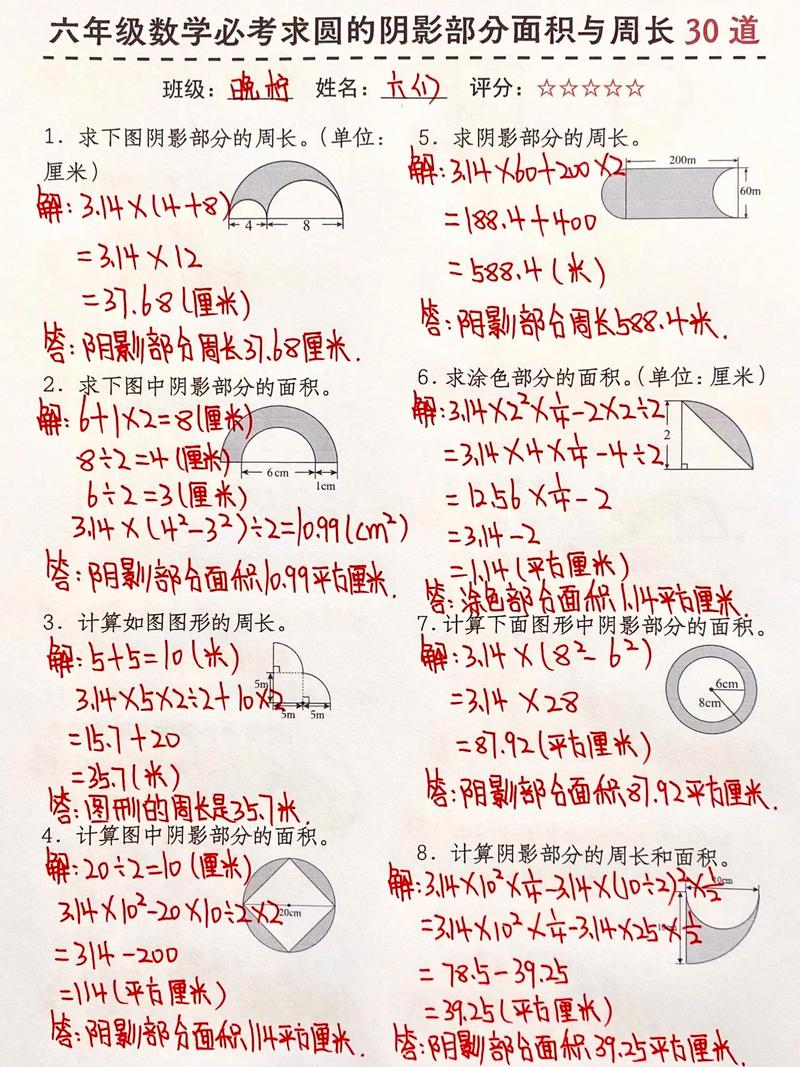 六年级数学必考求圆的阴影部分面积与周长 30 道
班级：晚柠 姓名：六们 评分：☆☆☆☆☆
1. 求下图阴影部分的周长。（单位：
厘米）
4 8
解：3.14×(4+8)
=3.14×12
=37.68(厘米)
答：阴影部分周长37.68厘米.
2. 求下图中阴影部分的面积。
解：6+1×2=8(厘米)
8÷2=4(厘米)
6÷2=3(厘米)
6cm 1cm
3.14×(4²-3²)÷2=10.99(cm²)
答：阴影部分面积10.99平方厘米.
3. 计算如图图形的周长。
解：5+5=10(米)
3.14×5×2÷2+10×2
5m 5m 5m
=15.7+20
=35.7(米)
答：图形的周长是35.7米.
4. 计算图中阴影部分的面积。
解：20÷2=10(厘米)
3.14×10²-20×10÷2×2
20cm
=314-200
=114(平方厘米)
答：阴影部分面积114平方厘米.
5. 求阴影部分的周长。
200m
60m
解：3.14×60+200×2
=188.4+400
=588.4(米)
答：阴影部分周长588.4米.
6. 求涂色部分的面积。（单位：厘米）
解：3.14×2²×1/4-2×2÷2
2
=3.14×4×1/4-4÷2
=12.56×1/4-2
=3.14-2
=1.14(平方厘米)
答：涂色部分面积1.14平方厘米.
7. 计算下面图形中阴影部分的面积。
解：3.14×(8²-6²)
6cm
8cm
=3.14×28
=87.92(平方厘米)
答：阴影部分面积87.92平方厘米.
8. 计算阴影部分的周长和面积。
解：3.14×10²×1/4-3.14×(10÷2)²×1/2
10cm
=3.14×10²×1/4-3.14×25×1/2
=78.5-39.25
=39.25(平方厘米)
答：阴影部分面积39.25平方厘米.